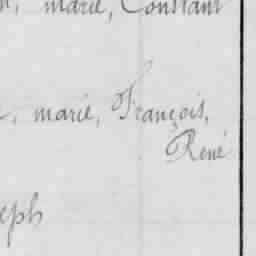 marie, Constant
marie, François,
René
eph